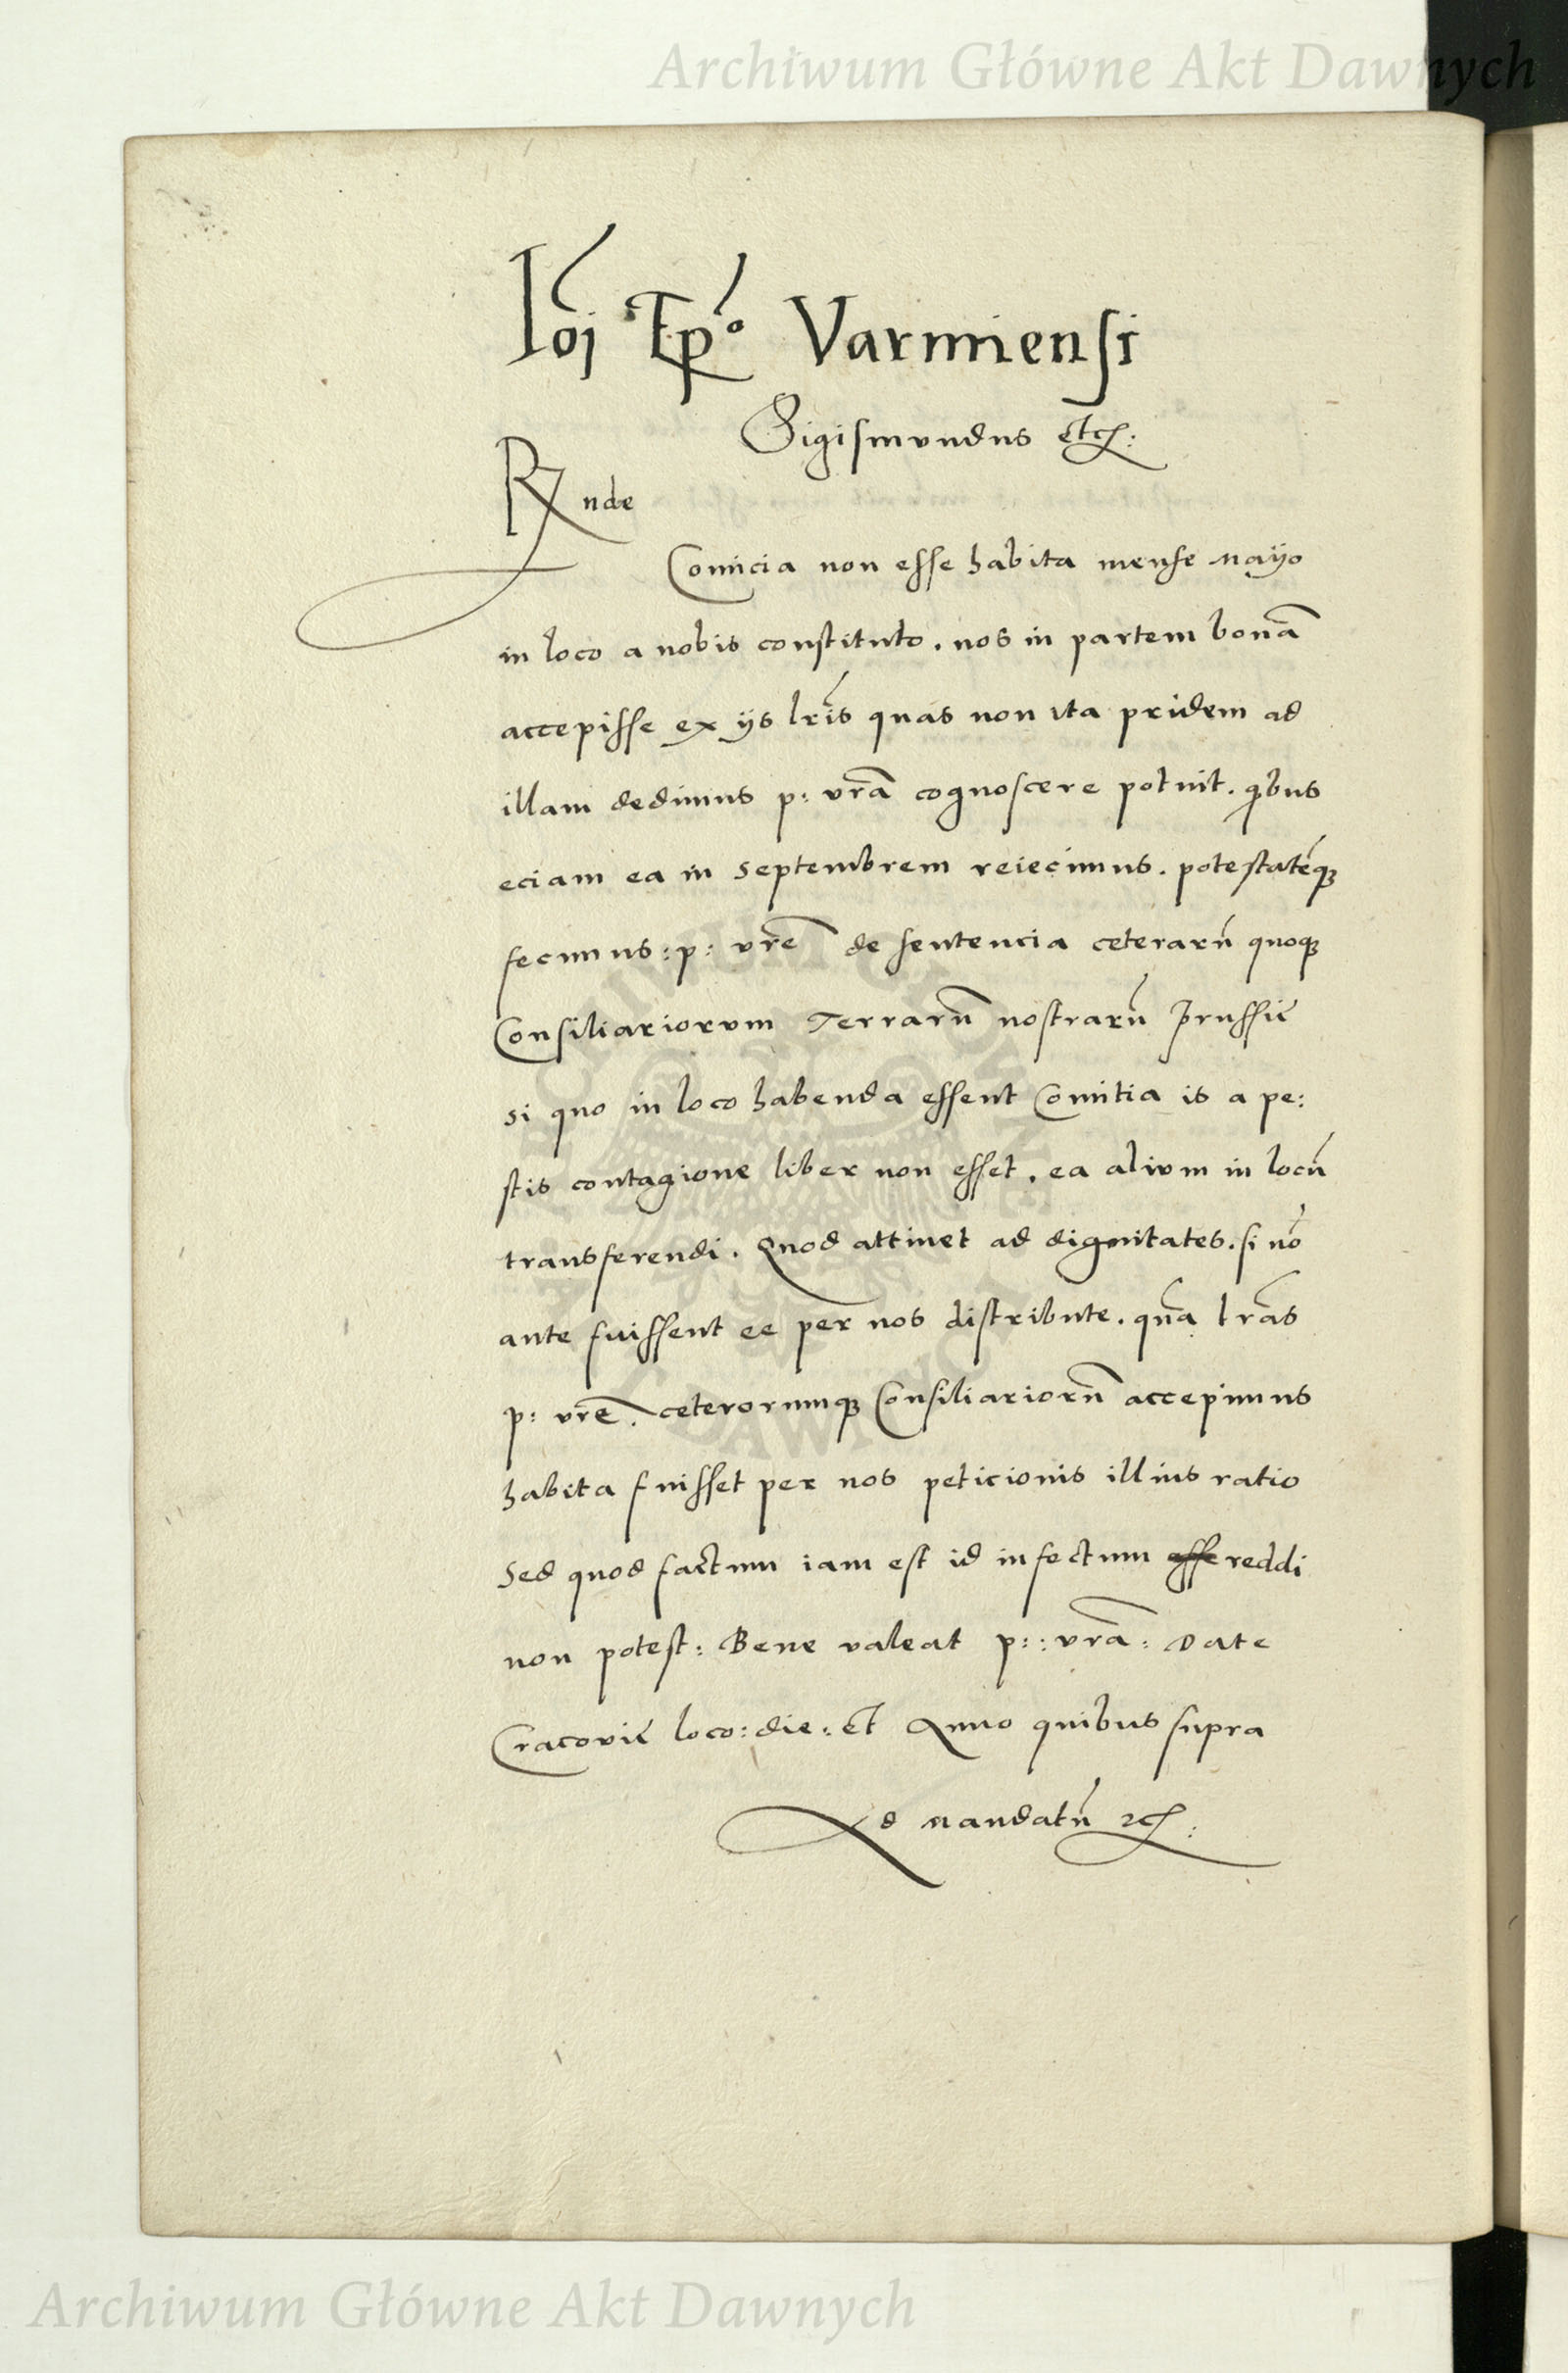 Archiwum Główne Akt Dawnych
Ioi Ep̄o Varmiensi
Sigismundus etc:
Rnde
Comicia non esse habita mense Maijo
in loco a nobis constituto. nos in partem bonā
accepisse ex ijs lr̄is quas non ita pridem ad
illam dedimus p: vr̄a cognoscere potuit. qibus
eciam ea in Septembrem reiecimus. potestatēqꝫ
fecimus: p: vr̄e de sentencia ceterarū quoqꝫ
Consiliariorum Terrarū nostrarū Prussię
si quo in loco habenda essent Comitia is a pe:
stis contagione liber non esset. ea alium in locū
transferendi. Quod attinet ad dignitates. si nō
ante fuissent ee per nos distribute. qn̄a lr̄as
p: vr̄e. ceterorumqꝫ Consiliariorū accepimus
habita fuisset per nos peticionis illius ratio
Sed quod factum iam est id infectum esse reddi
non potest: Bene valeat p:: vr̄a: Date
Cracovię loco: die: et Anno quibus supra
Ad Mandatū etc:
ARCHIWUM GŁÓWNE AKT DAWNYCH
Archiwum Główne Akt Dawnych